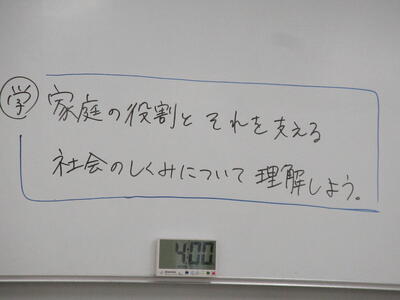 学 家庭の役割とそれを支える
社会のしくみについて理解しよう。
4:00